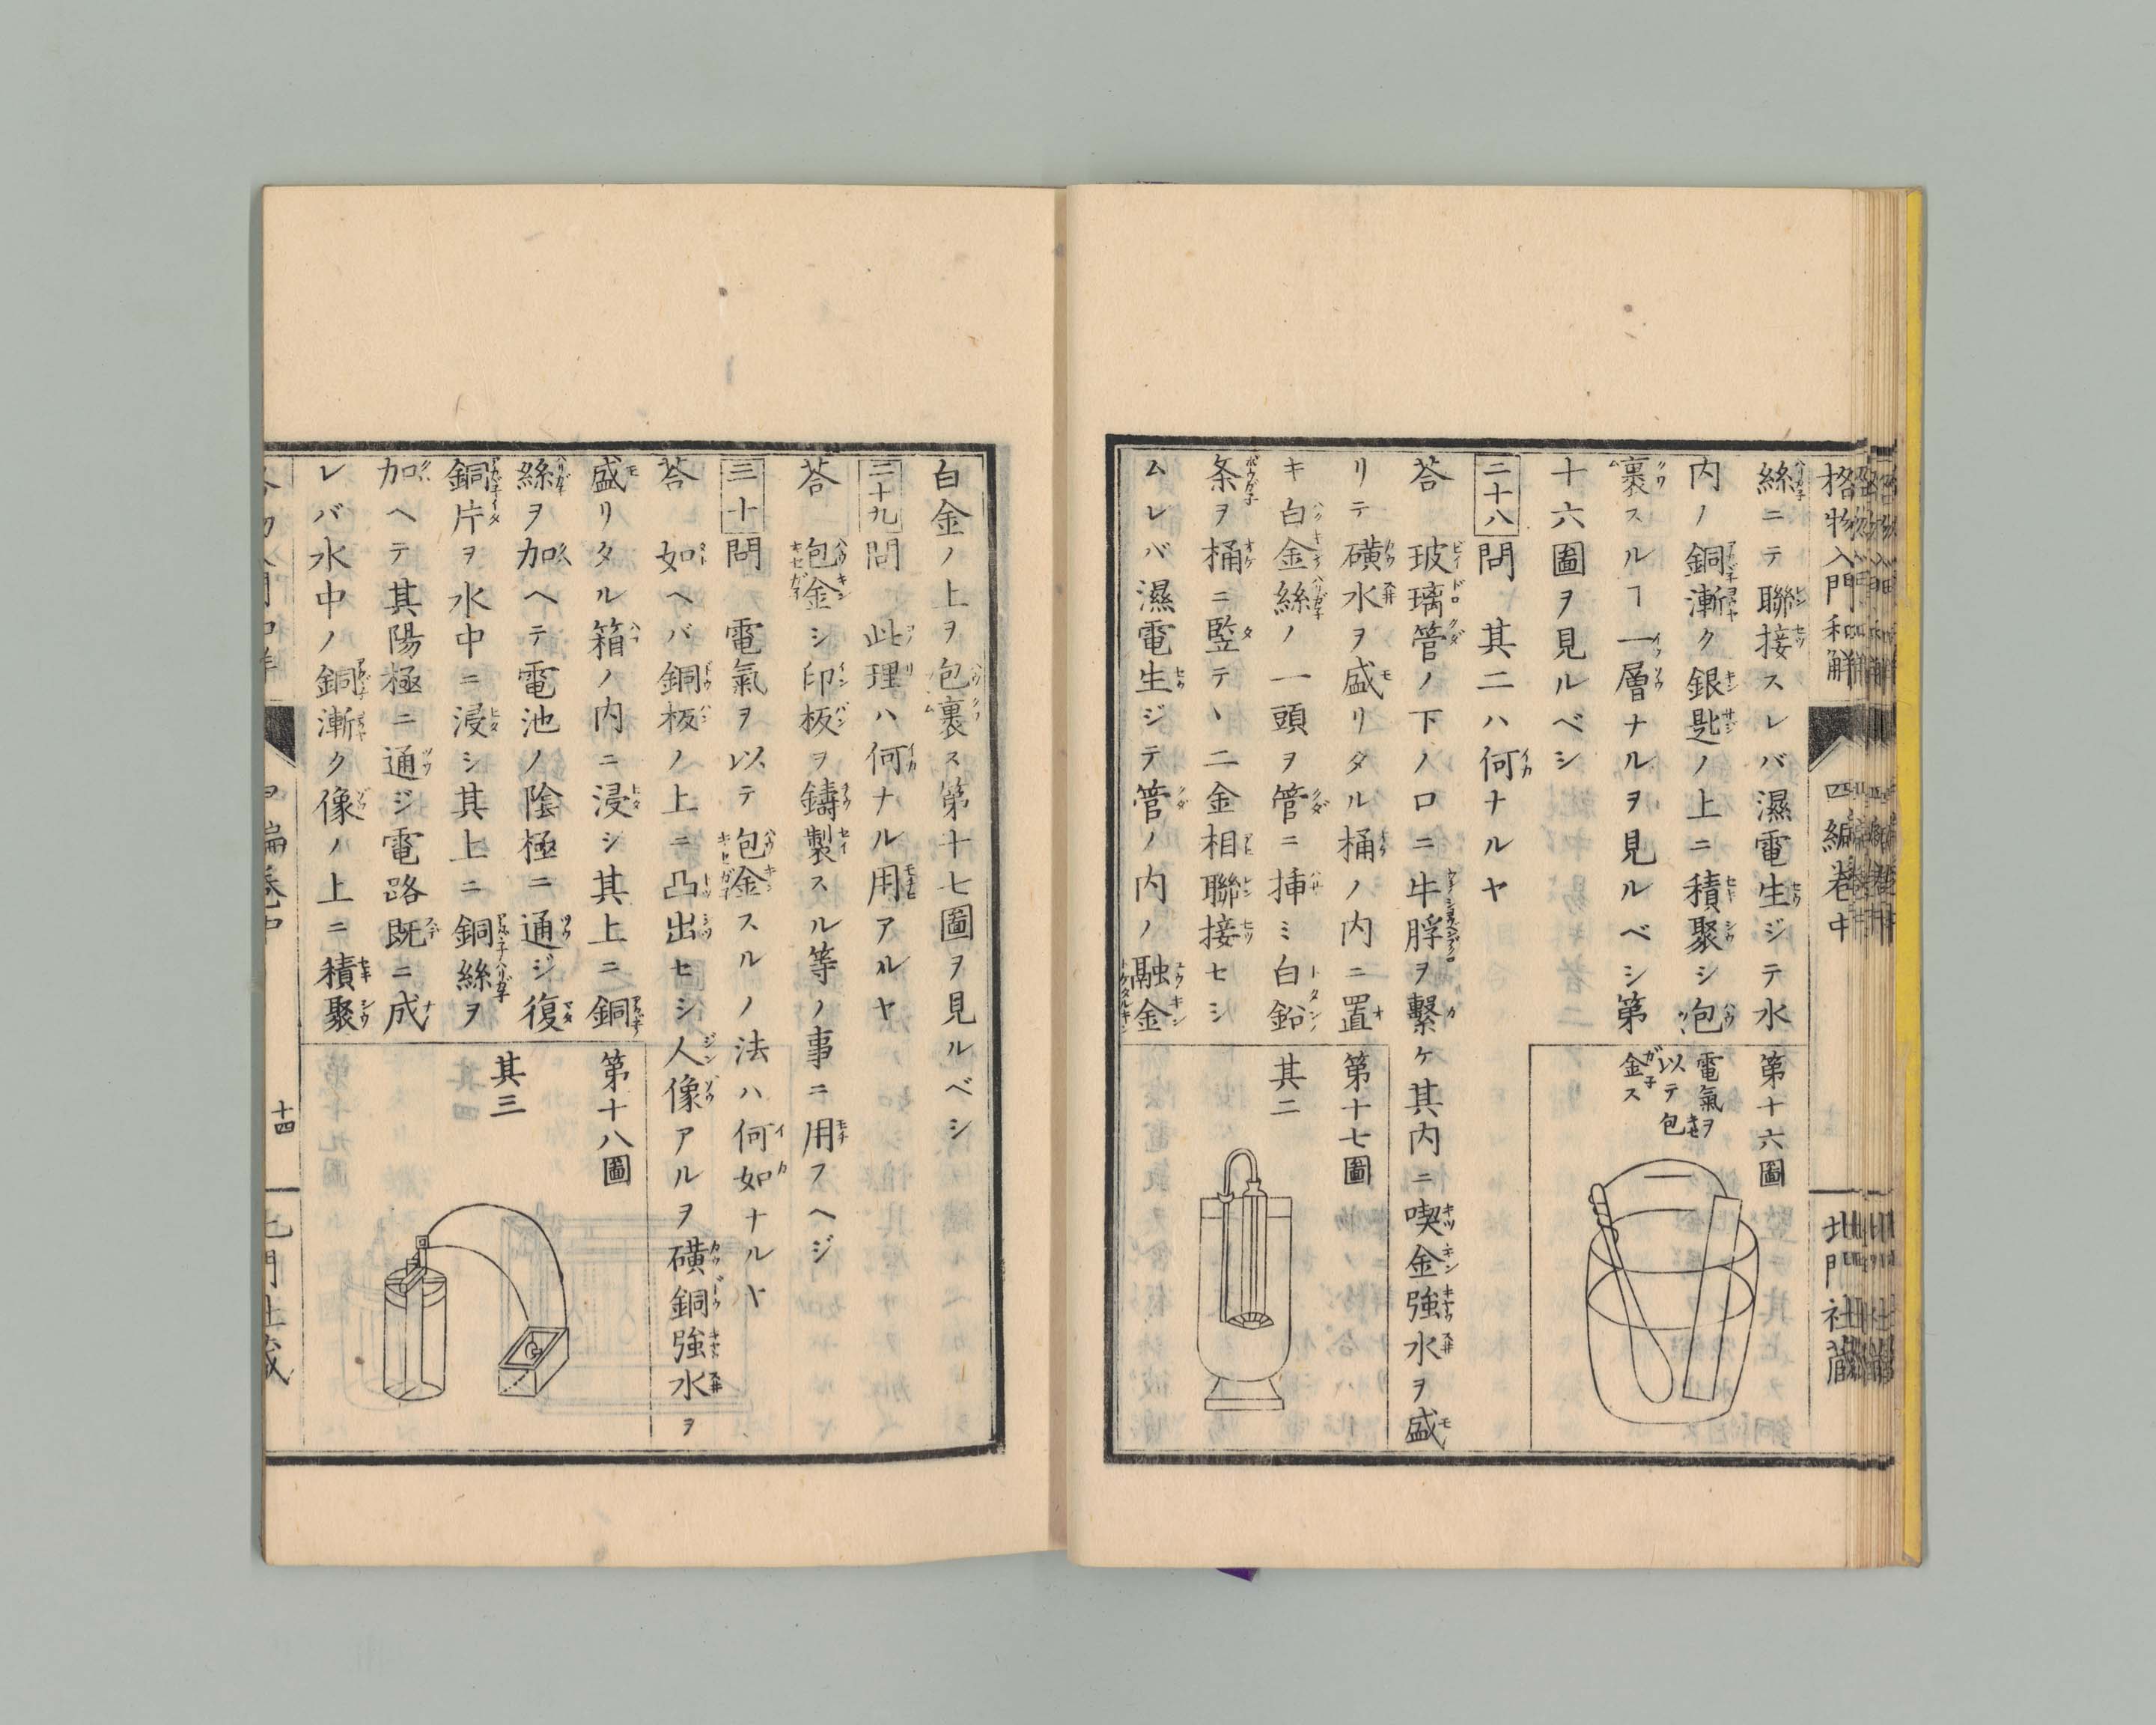 格物入門和解
四編巻中
北門社蔵
絲ニテ聯接スレバ濕電生ジテ水
内ノ銅漸ク銀匙ノ上ニ積聚シ包
裹スルヿ一層ナルヲ見ルベシ第
十六圖ヲ見ルベシ
第十六圖
電氣ヲ
以テ包
金ス
二十八問 其二ハ何ナルヤ
荅 玻璃管ノ下ノ口ニ牛脬ヲ繫ケ其内ニ喫金強水ヲ盛
リテ磺水ヲ盛リタル桶ノ内ニ置
キ白金絲ノ一頭ヲ管ニ挿ミ白鉛
条ヲ桶ニ竪テヽ二金相聯接セシ
ムレバ濕電生ジテ管ノ内ノ融金
第十七圖
其二
白金ノ上ヲ包裹ス第十七圖ヲ見ルベシ
二十九問 此理ハ何ナル用アルヤ
荅 包金シ印板ヲ鑄製スル等ノ事ニ用フヘジ
三十問 電氣ヲ以テ包金スルノ法ハ何如ナルヤ
荅 如ヘバ銅板ノ上ニ凸出セシ人像アルヲ磺銅強水ヲ
盛リタル箱ノ内ニ浸シ其上ニ銅
絲ヲ加ヘテ電池ノ陰極ニ通ジ復
銅片ヲ水中ニ浸シ其上ニ銅絲ヲ
加ヘテ其陽極ニ通ジ電路既ニ成
レバ水中ノ銅漸ク像ノ上ニ積聚
第十八圖
其三
十四